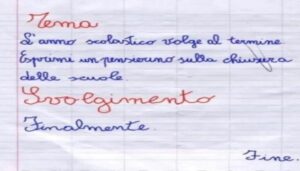 Tema
L'anno scolastico volge al termine
Esprimi un pensierino sulla chiusura
delle scuole.
Svolgimento
Finalmente.
Fine.